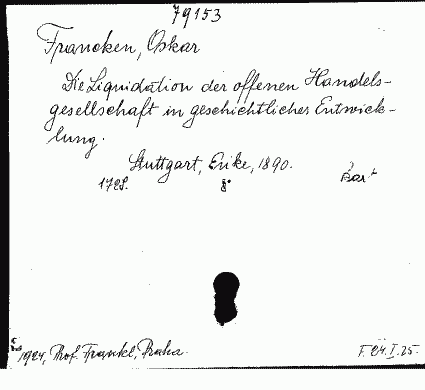 79153
Francken, Oskar
Die Liquidation der offenen Handels-
gesellschaft in geschichtlicher Entwick-
lung.
Stuttgart, Enke, 1890.
172S. 8°
1924, Prof. Frankl, Praha.
F. 24.I.25.